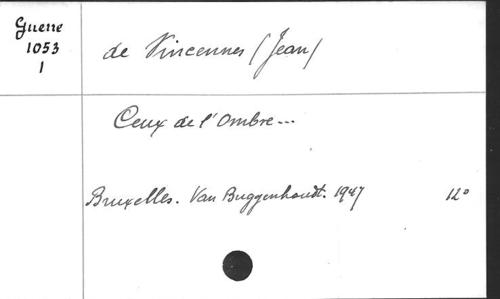 Guerre
1053
1
de Vincennes (Jean)
Ceux de l'Ombre...
Bruxelles. Van Buggenhoudt. 1947 12°